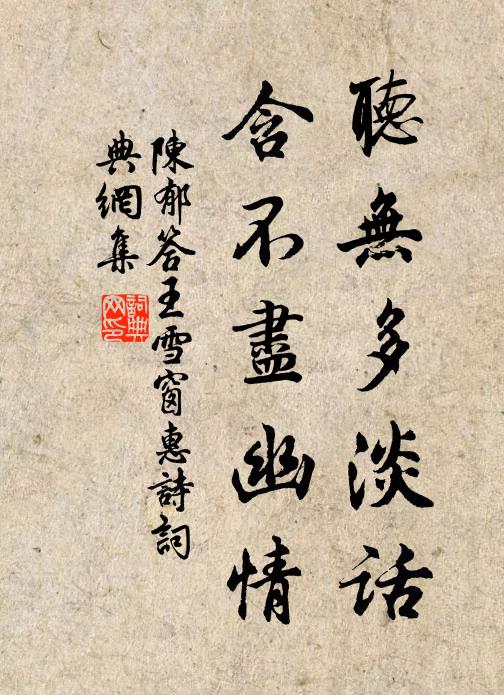 聽無多淡話
含不盡幽情
陳郁答王雪窗惠詩詞
典網集
詞典網印